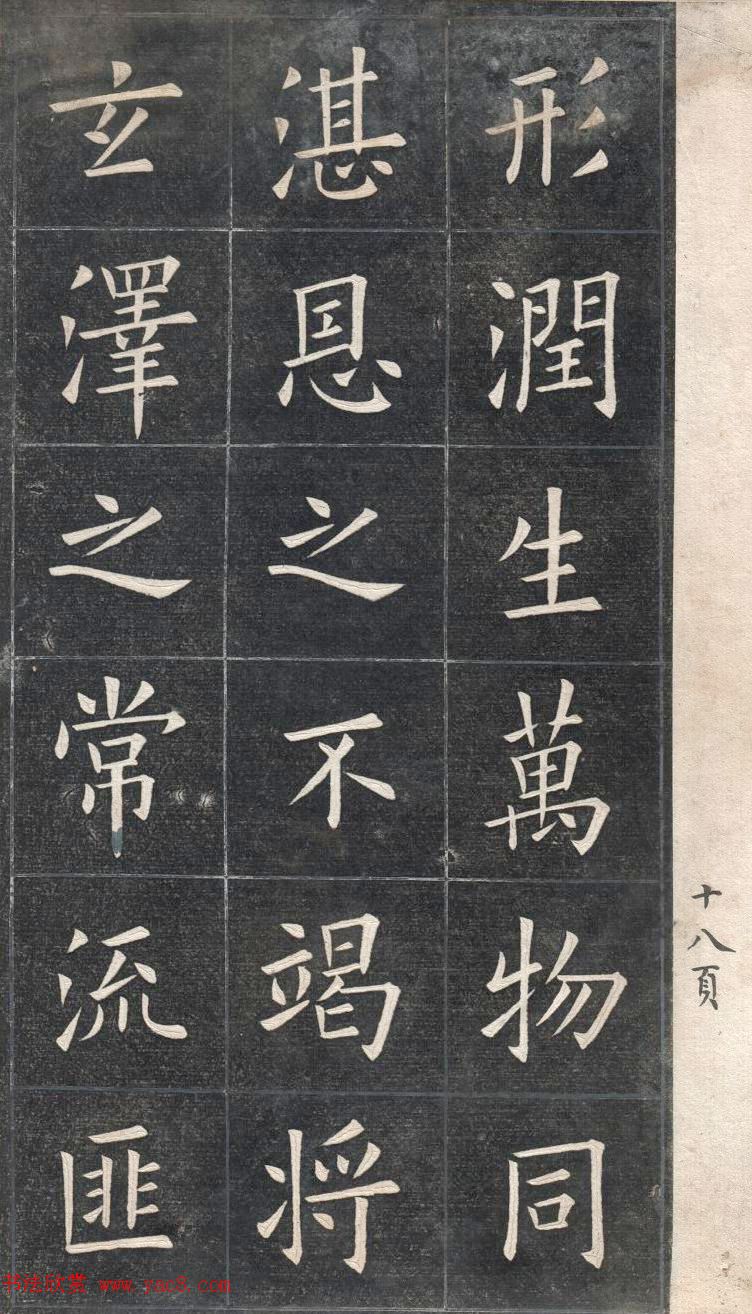 形潤生萬物同
湛恩之不竭将
玄澤之常流匪
十八頁
书法欣赏 www.yac8.com